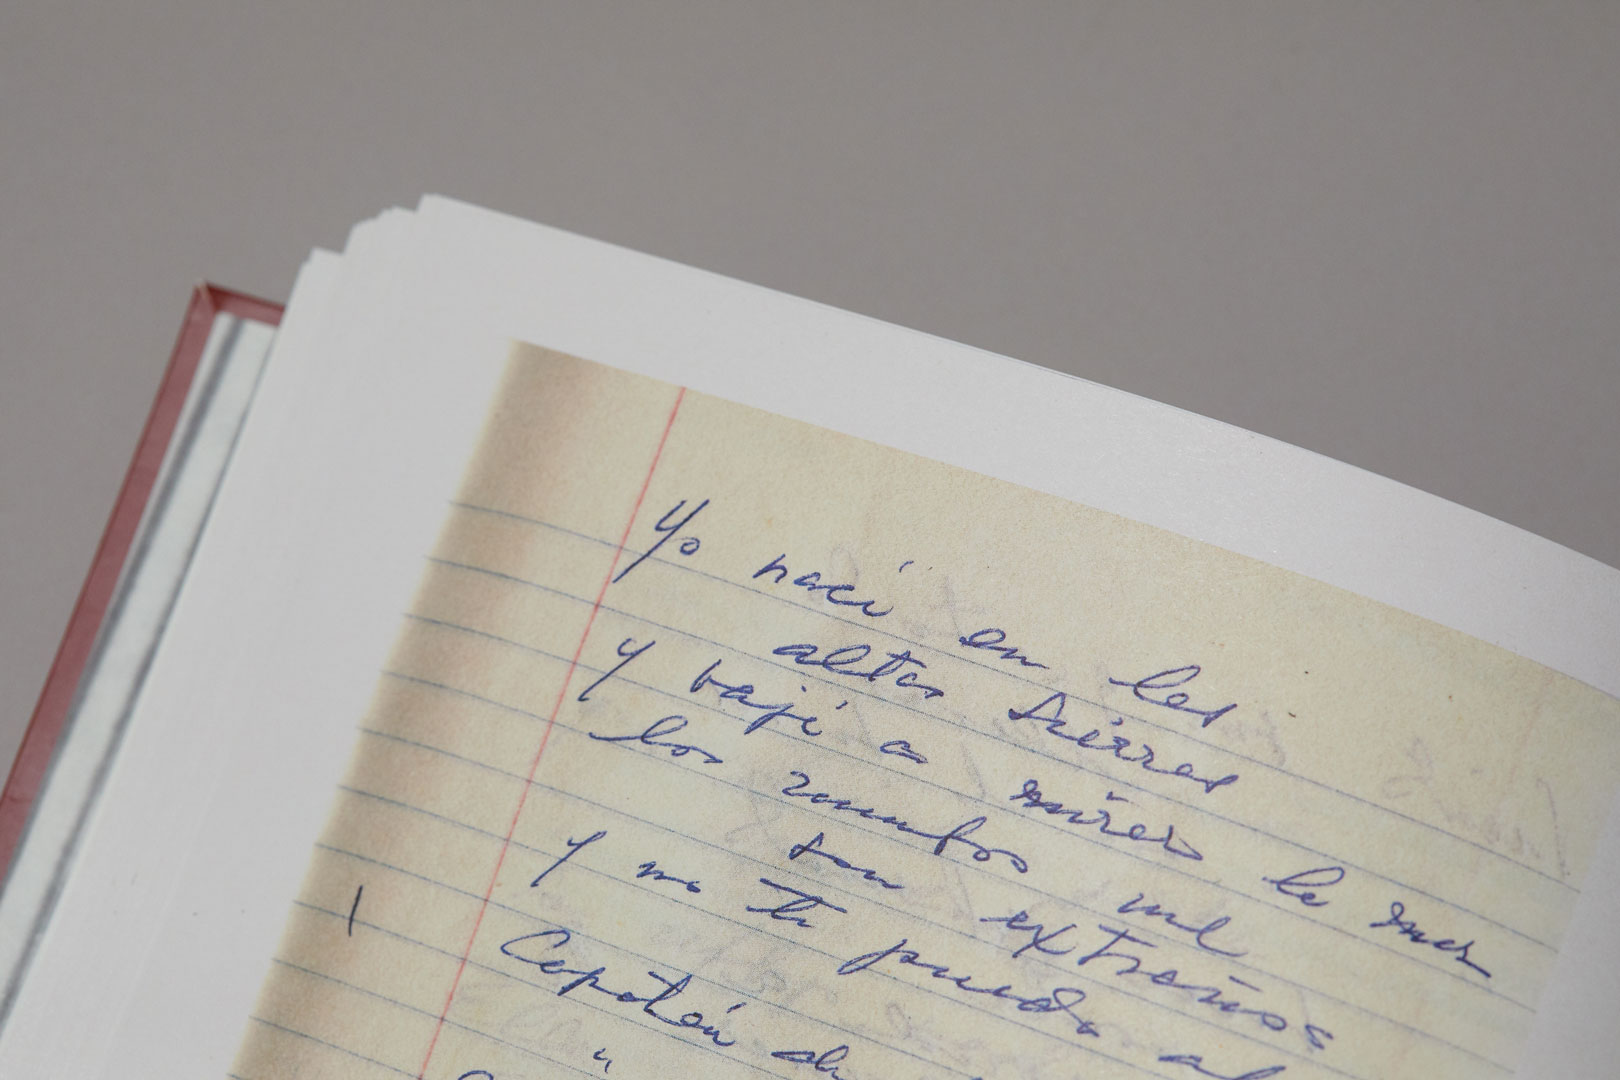 Yo nací en las
altas sierras
Y bajé a mirar la mar
los rumbos mil
son extraños
Y no te puedo al
Capitán de